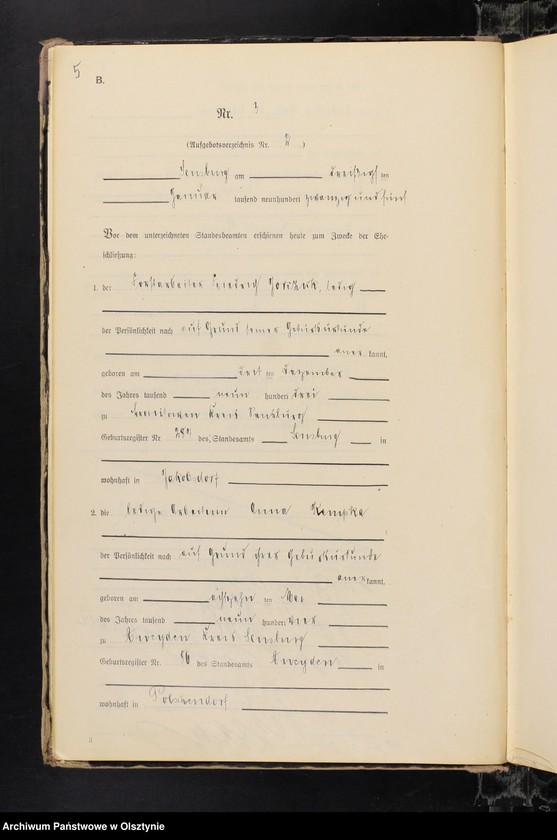 5
B.
Nr. 3
(Aufgebotsverzeichnis Nr. 2)
Sensburg am dreißigsten
Januar tausend neunhundert zwanzig und fünf
Vor dem unterzeichneten Standesbeamten erschienen heute zum Zwecke der Ehe-
schließung:
1. der Forstarbeiter Friedrich ledig
der Persönlichkeit nach auf Grund seiner Geburtsurkunde
anerkannt,
geboren am drit ten Dezember
des Jahres tausend neun hundert drei
zu Kreis Sensburg
Geburtsregister Nr. des Standesamts Sensburg in
wohnhaft in Jakobsdorf
2. die ledige Arbeiterin Anna Kempka
der Persönlichkeit nach auf Grund ihrer Geburtsurkunde
anerkannt,
geboren am achtzehn ten Mai
des Jahres tausend neun hundert vier
zu Aweyden Kreis Sensburg
Geburtsregister Nr. 56 des Standesamts Aweyden in
wohnhaft in Polschendorf
Archiwum Państwowe w Olsztynie